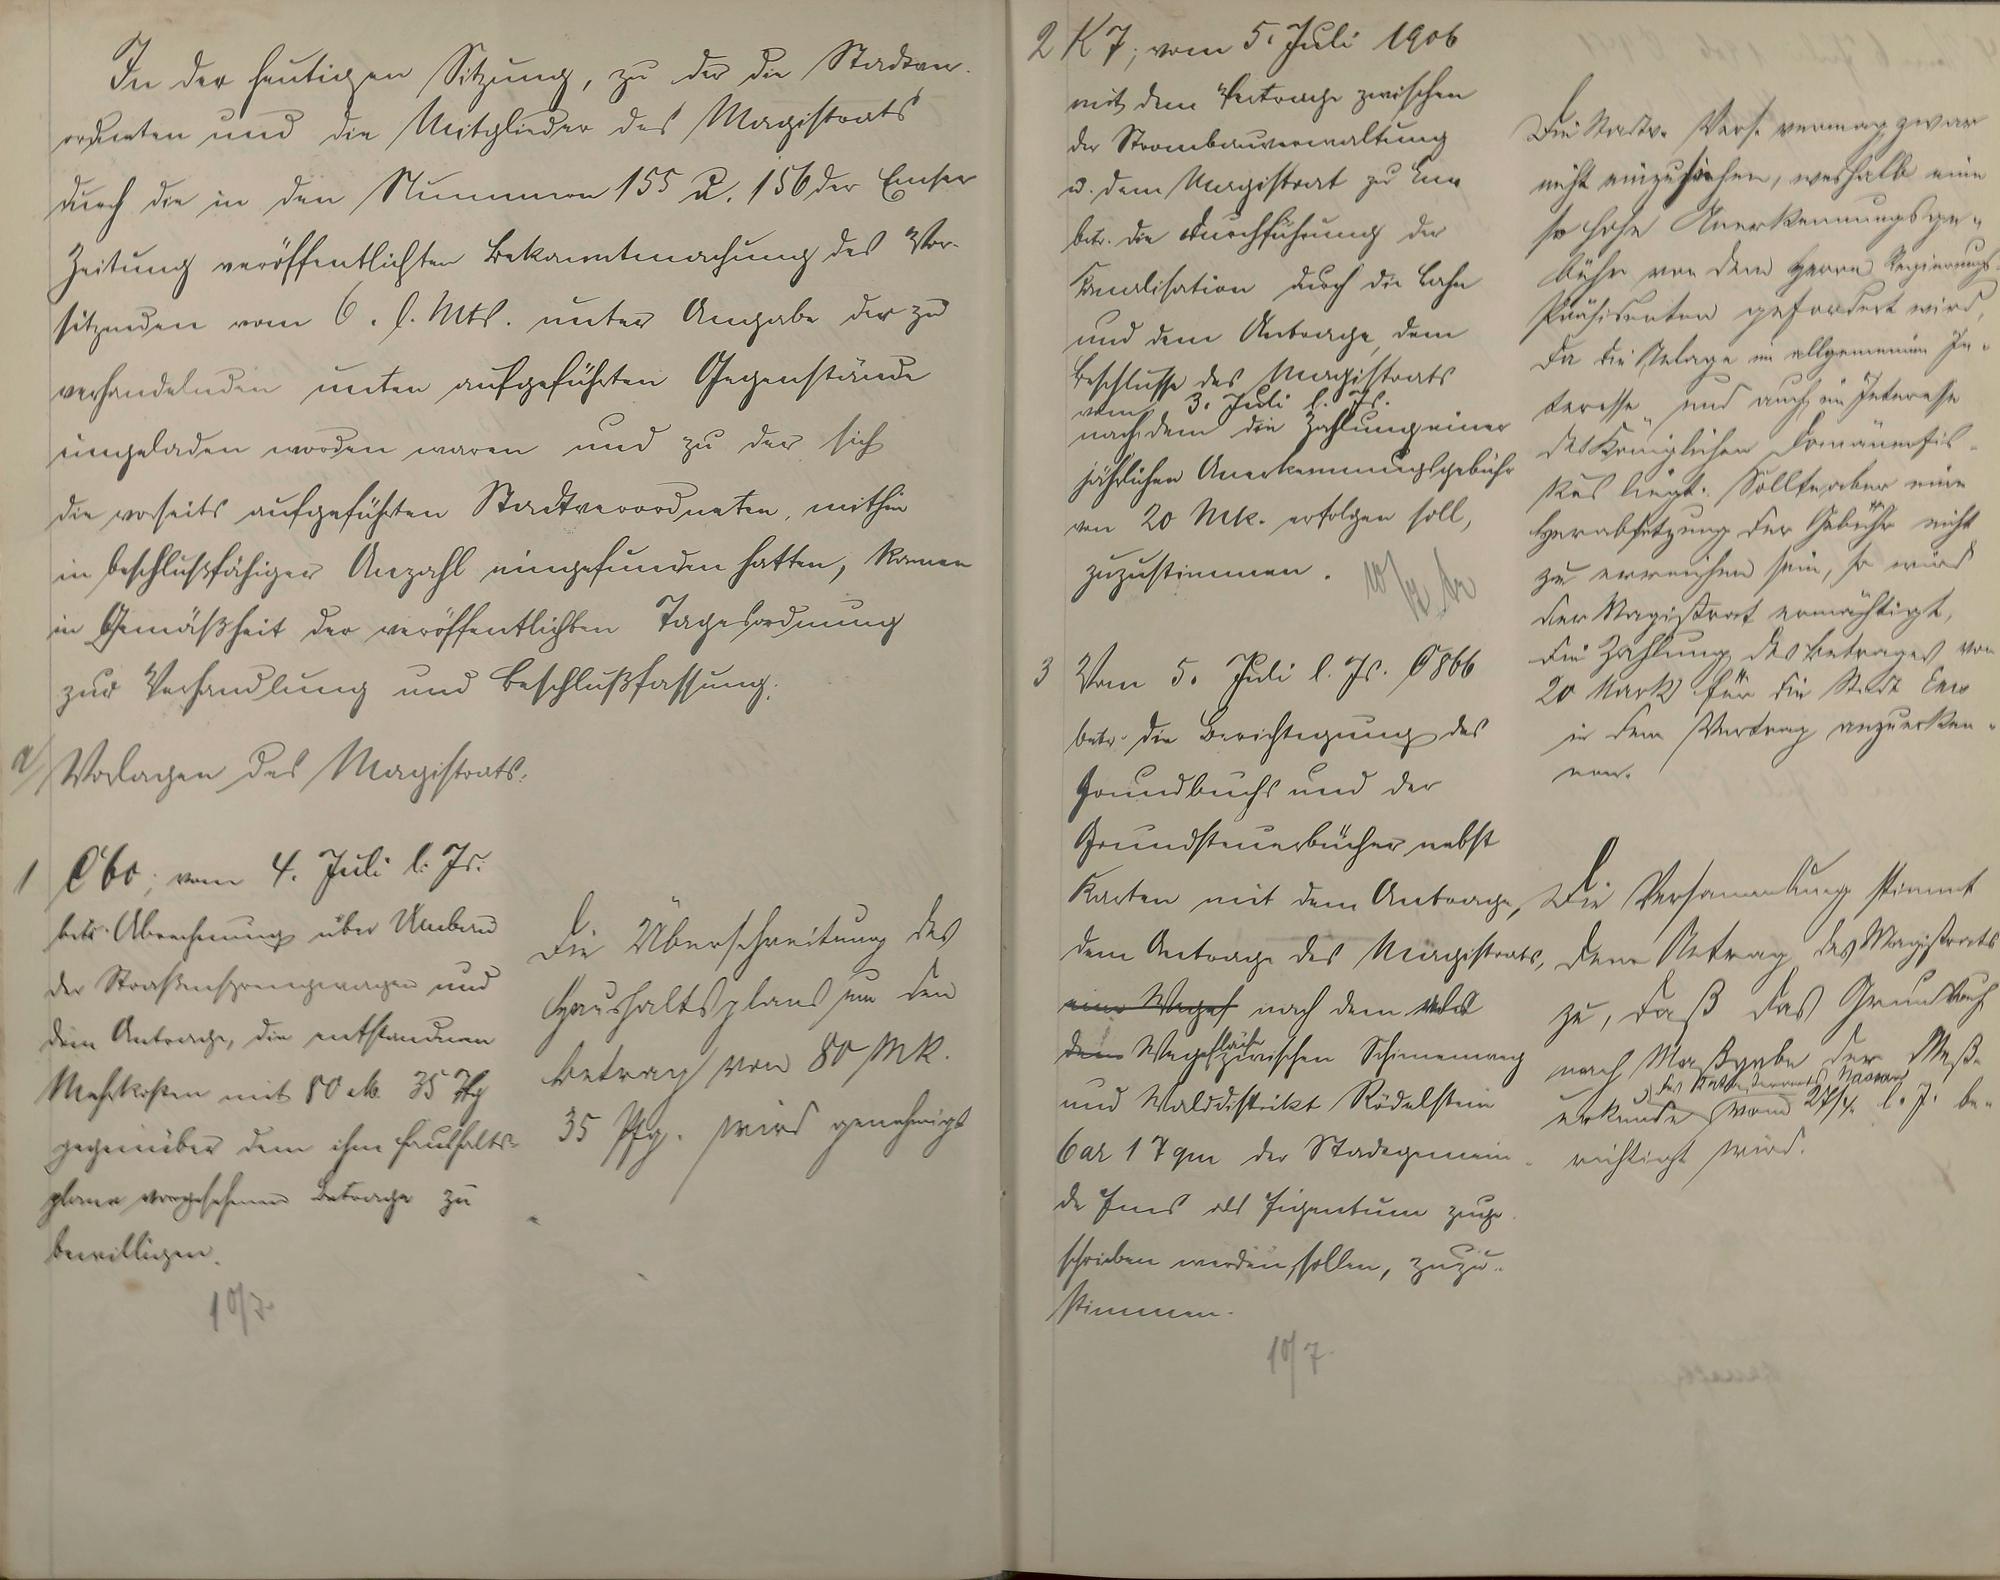 In der heutigen Sitzung, zu der die Stadtver-
ordneten und die Mitglieder des Magistrats
durch die in den Nummern 155 u. 156 der Emser
Zeitung veröffentlichten Bekanntmachung des Vor-
sitzenden vom 6. l. Mts. unter Angabe der zu
verhandelnden unten aufgeführten Gegenstände
eingeladen worden waren und zu der sich
die vorseits aufgeführten Stadtverordneten, mithin
in beschlußfähiger Anzahl eingefunden hatten, kamen
in Gemäßheit der veröffentlichten Tagesordnung
zur Verhandlung und Beschlußfassung:
a/ Vorlagen des Magistrats:
1 C 60; vom 4. Juli l. Js.
betr. Abrechnung über Umbau
der Straßensprengwagen und
dem Antrage, die entstandenen
Mehrkosten mit 80 M. 35 Pfg
gegenüber dem im Haushalts-
plane vorgesehenen Betrage zu
bewilligen.
10/7.
Die Überschreitung des
Haushaltsplans um den
Betrag von 80 Mk.
35 Pfg. wird genehmigt
2 K 7; vom 5. Juli 1906
mit dem Vertrage zwischen
der Strombauverwaltung
u. dem Magistrat zu Ems
betr. die Durchführung der
Kanalisation durch die Lahn
und dem Antrage, dem
Beschlusse des Magistrats
vom 3. Juli l. Js.
nachdem die Zahlung einer
jährlichen Anerkennungsgebühr
von 20 Mk. erfolgen soll,
zuzustimmen.
10/7
Die Stadtv. Vers. vermag zwar
nicht einzusehen, weshalb eine
so hohe Anerkennungsge-
bühr von dem Herrn Regierungs-
Präsidenten gefordert wird,
da die Anlage im allgemeinen In-
teresse und auch im Interesse
des Königlichen Domänenfis-
kus liegt. Sollte aber eine
Herabsetzung der Gebühr nicht
zu erreichen sein, so wird
der Magistrat ermächtigt,
die Zahlung des Betrages von
20 Mark für die Stadt Ems
in dem Vertrag anzuerken-
nen.
3 Vom 5. Juli l. Js. C 866
betr. die Berichtigung des
Grundbuchs und der
Grundsteuerbücher nebst
Karten mit dem Antrage,
dem Antrage des Magistrats,
nach dem als
dem Wegefläche zwischen Schimmerweg
und Walddistrikt Rödelstein
6 ar 17 qm der Stadtgemein-
de Ems als Eigentum zuge-
schrieben werden sollen, zuzu-
stimmen.
10/7.
Die Versammlung stimmt
dem Antrag des Magistrats
zu, daß das Grundbuch
nach Maßgabe der Meß-
des Katasteramts Nassau
urkunde vom 27/4. l. J. be-
richtigt wird.